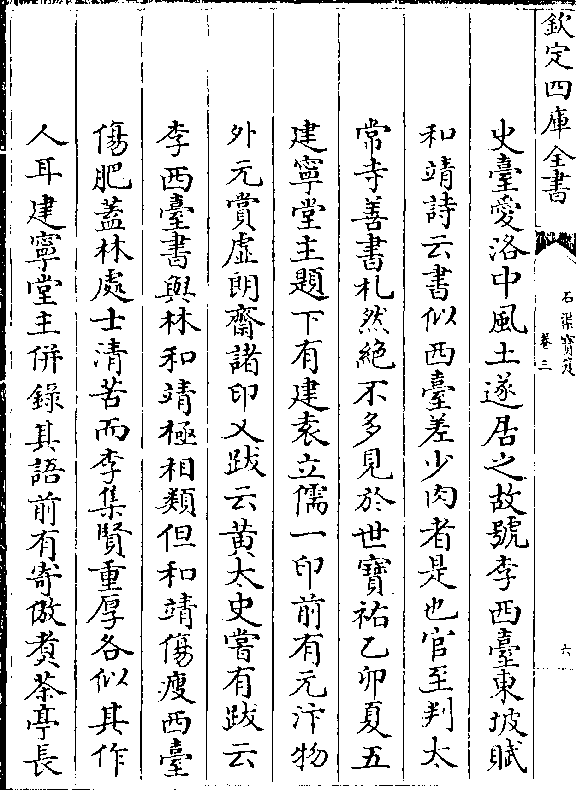 欽定四庫全書
石渠寶笈
卷三
六
史臺愛洛中風土遂居之故號李西臺東坡賦
和靖詩云書似西臺差少肉者是也官至判太
常寺善書札然絶不多見於世寶祐乙卯夏五
建寧堂主題下有建袁立儒一印前有元汴物
外元賞虚朗齋諸印又跋云黄太史嘗有跋云
李西臺書與林和靖極相類但和靖傷瘦西臺
傷肥蓋林處士清苦而李集賢重厚各似其作
人耳建寧堂主併錄其語前有寄傲煑茶亭長